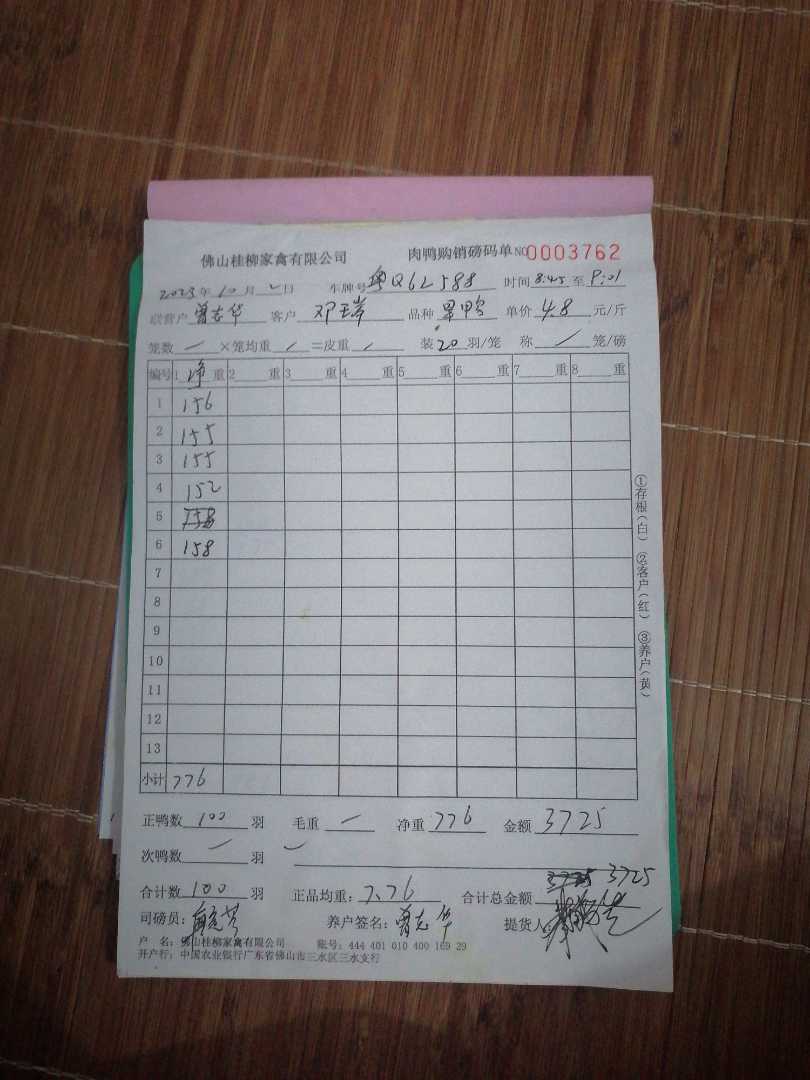 佛山桂柳家禽有限公司 肉鸭购销磅码单 NO 0003762
2023年10月2日 车牌号粤Q62588 时间8:45至9:01
联营户曾志华 客户 邓 品种 单价4.8元/斤
笼数/×笼均重/=皮重/ 装20羽/笼 称/笼/磅
编号 1净重 2重 3重 4重 5重 6重 7重 8重
1 156
2 155
3 155
4 152
5
6 158
7
8
9
10
11
12
13
小计 776
正鸭数100羽 毛重/ 净重776 金额3725
次鸭数/羽
合计数100羽 正品均重:7.76 合计总金额3725 3725
司磅员: 养户签名:曾志华 提货人:
户 名:佛山桂柳家禽有限公司 账号:444 401 010 400 169 29
开户行:中国农业银行广东省佛山市三水区三水支行
①存根(白) ②客户(红) ③养户(黄)